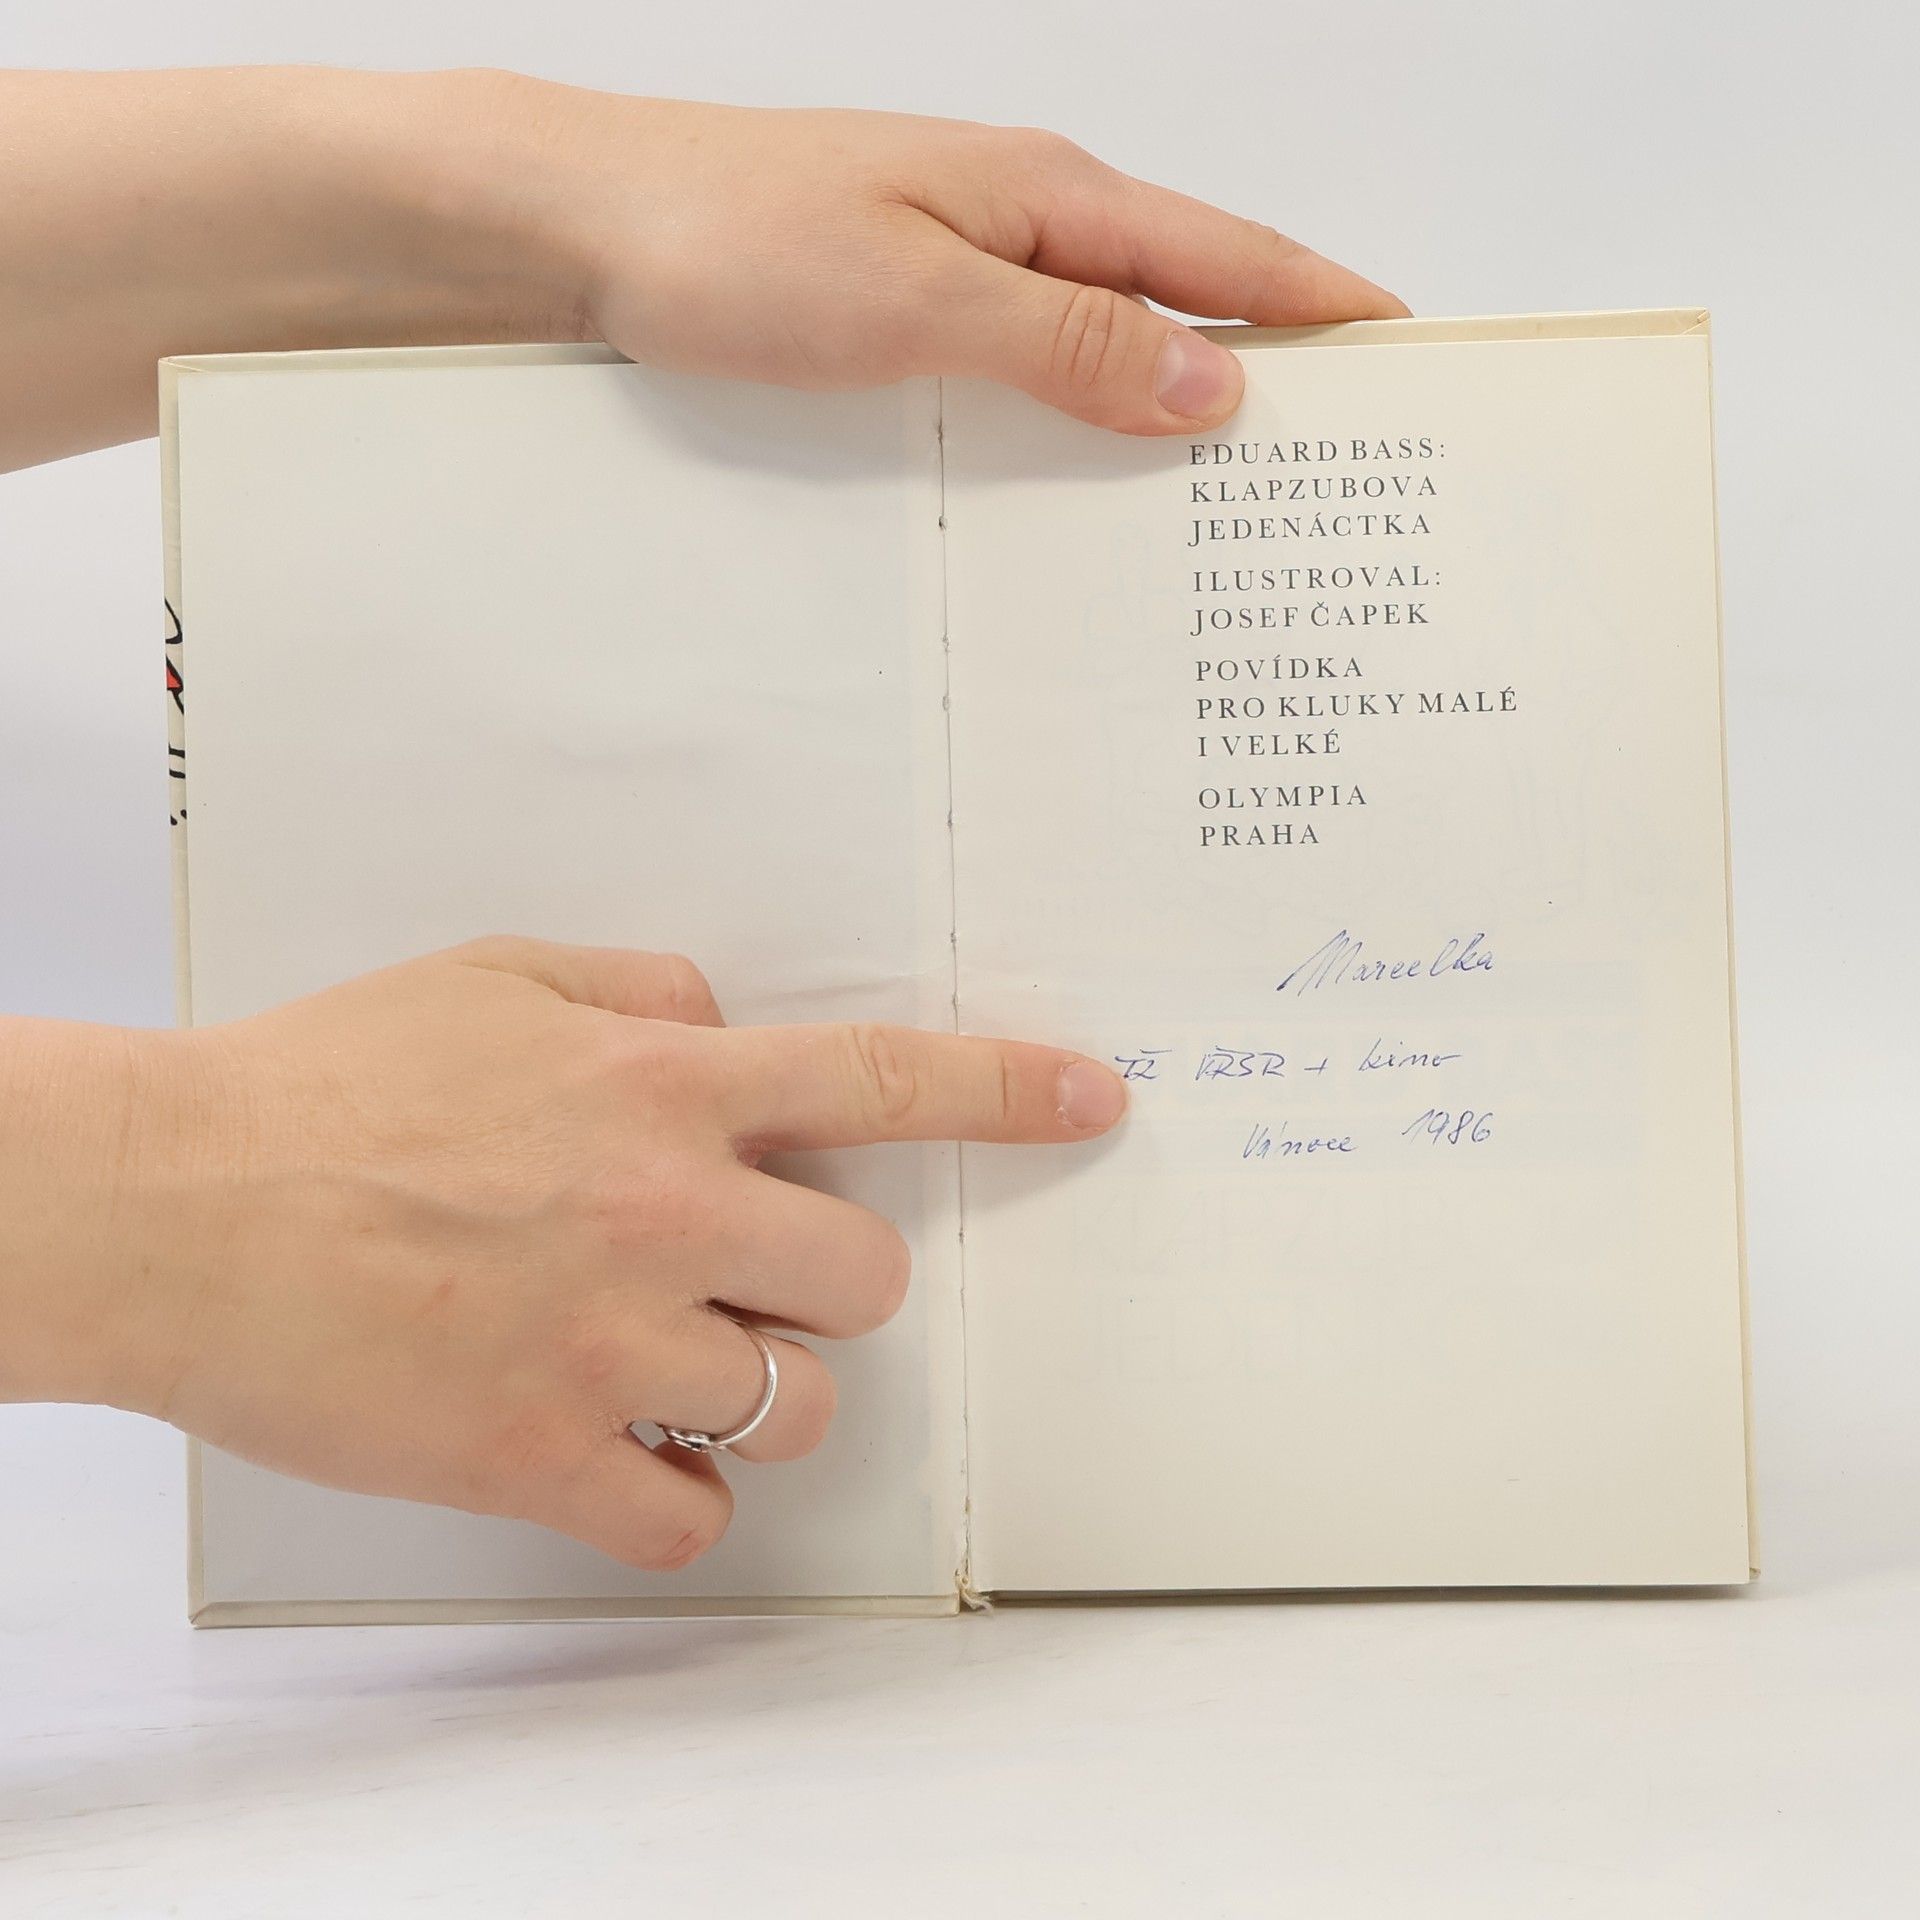 EDUARD BASS:
KLAPZUBOVA
JEDENÁCTKA
ILUSTROVAL:
JOSEF ČAPEK
POVÍDKA
PRO KLUKY MALÉ
I VELKÉ
OLYMPIA
PRAHA
Marcelka
VŘSR + kino
Vánoce 1986